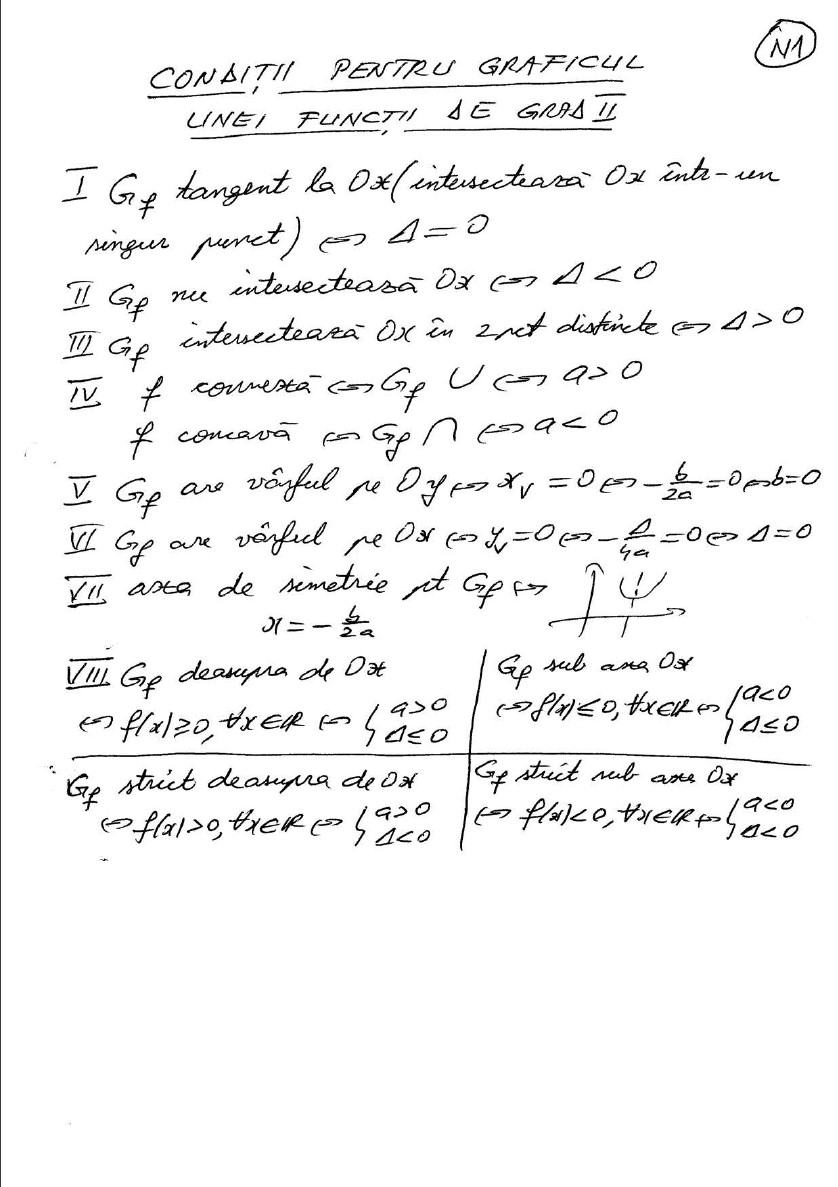 N1
CONDIȚII PENTRU GRAFICUL
UNEI FUNCȚII DE GRAD II
I Gf tangent la Ox (intersectează Ox într-un
singur punct) ⇔ Δ = 0
II Gf nu intersectează Ox ⇔ Δ < 0
III Gf intersectează Ox în 2 pct distincte ⇔ Δ > 0
IV f convexă ⇔ Gf ∪ ⇔ a > 0
f concavă ⇔ Gf ∩ ⇔ a < 0
V Gf are vârful pe Oy ⇔ xv = 0 ⇔ -b/2a = 0 ⇔ b = 0
VI Gf are vârful pe Ox ⇔ yv = 0 ⇔ -Δ/4a = 0 ⇔ Δ = 0
VII axa de simetrie pt Gf ⇔
x = -b/2a
VIII Gf deasupra de Ox
⇔ f(x) ≥ 0, ∀x∈ℝ ⇔ { a > 0
Δ ≤ 0
Gf sub axa Ox
⇔ f(x) ≤ 0, ∀x∈ℝ ⇔ { a < 0
Δ ≤ 0
Gf strict deasupra de Ox
⇔ f(x) > 0, ∀x∈ℝ ⇔ { a > 0
Δ < 0
Gf strict sub axa Ox
⇔ f(x) < 0, ∀x∈ℝ ⇔ { a < 0
Δ < 0